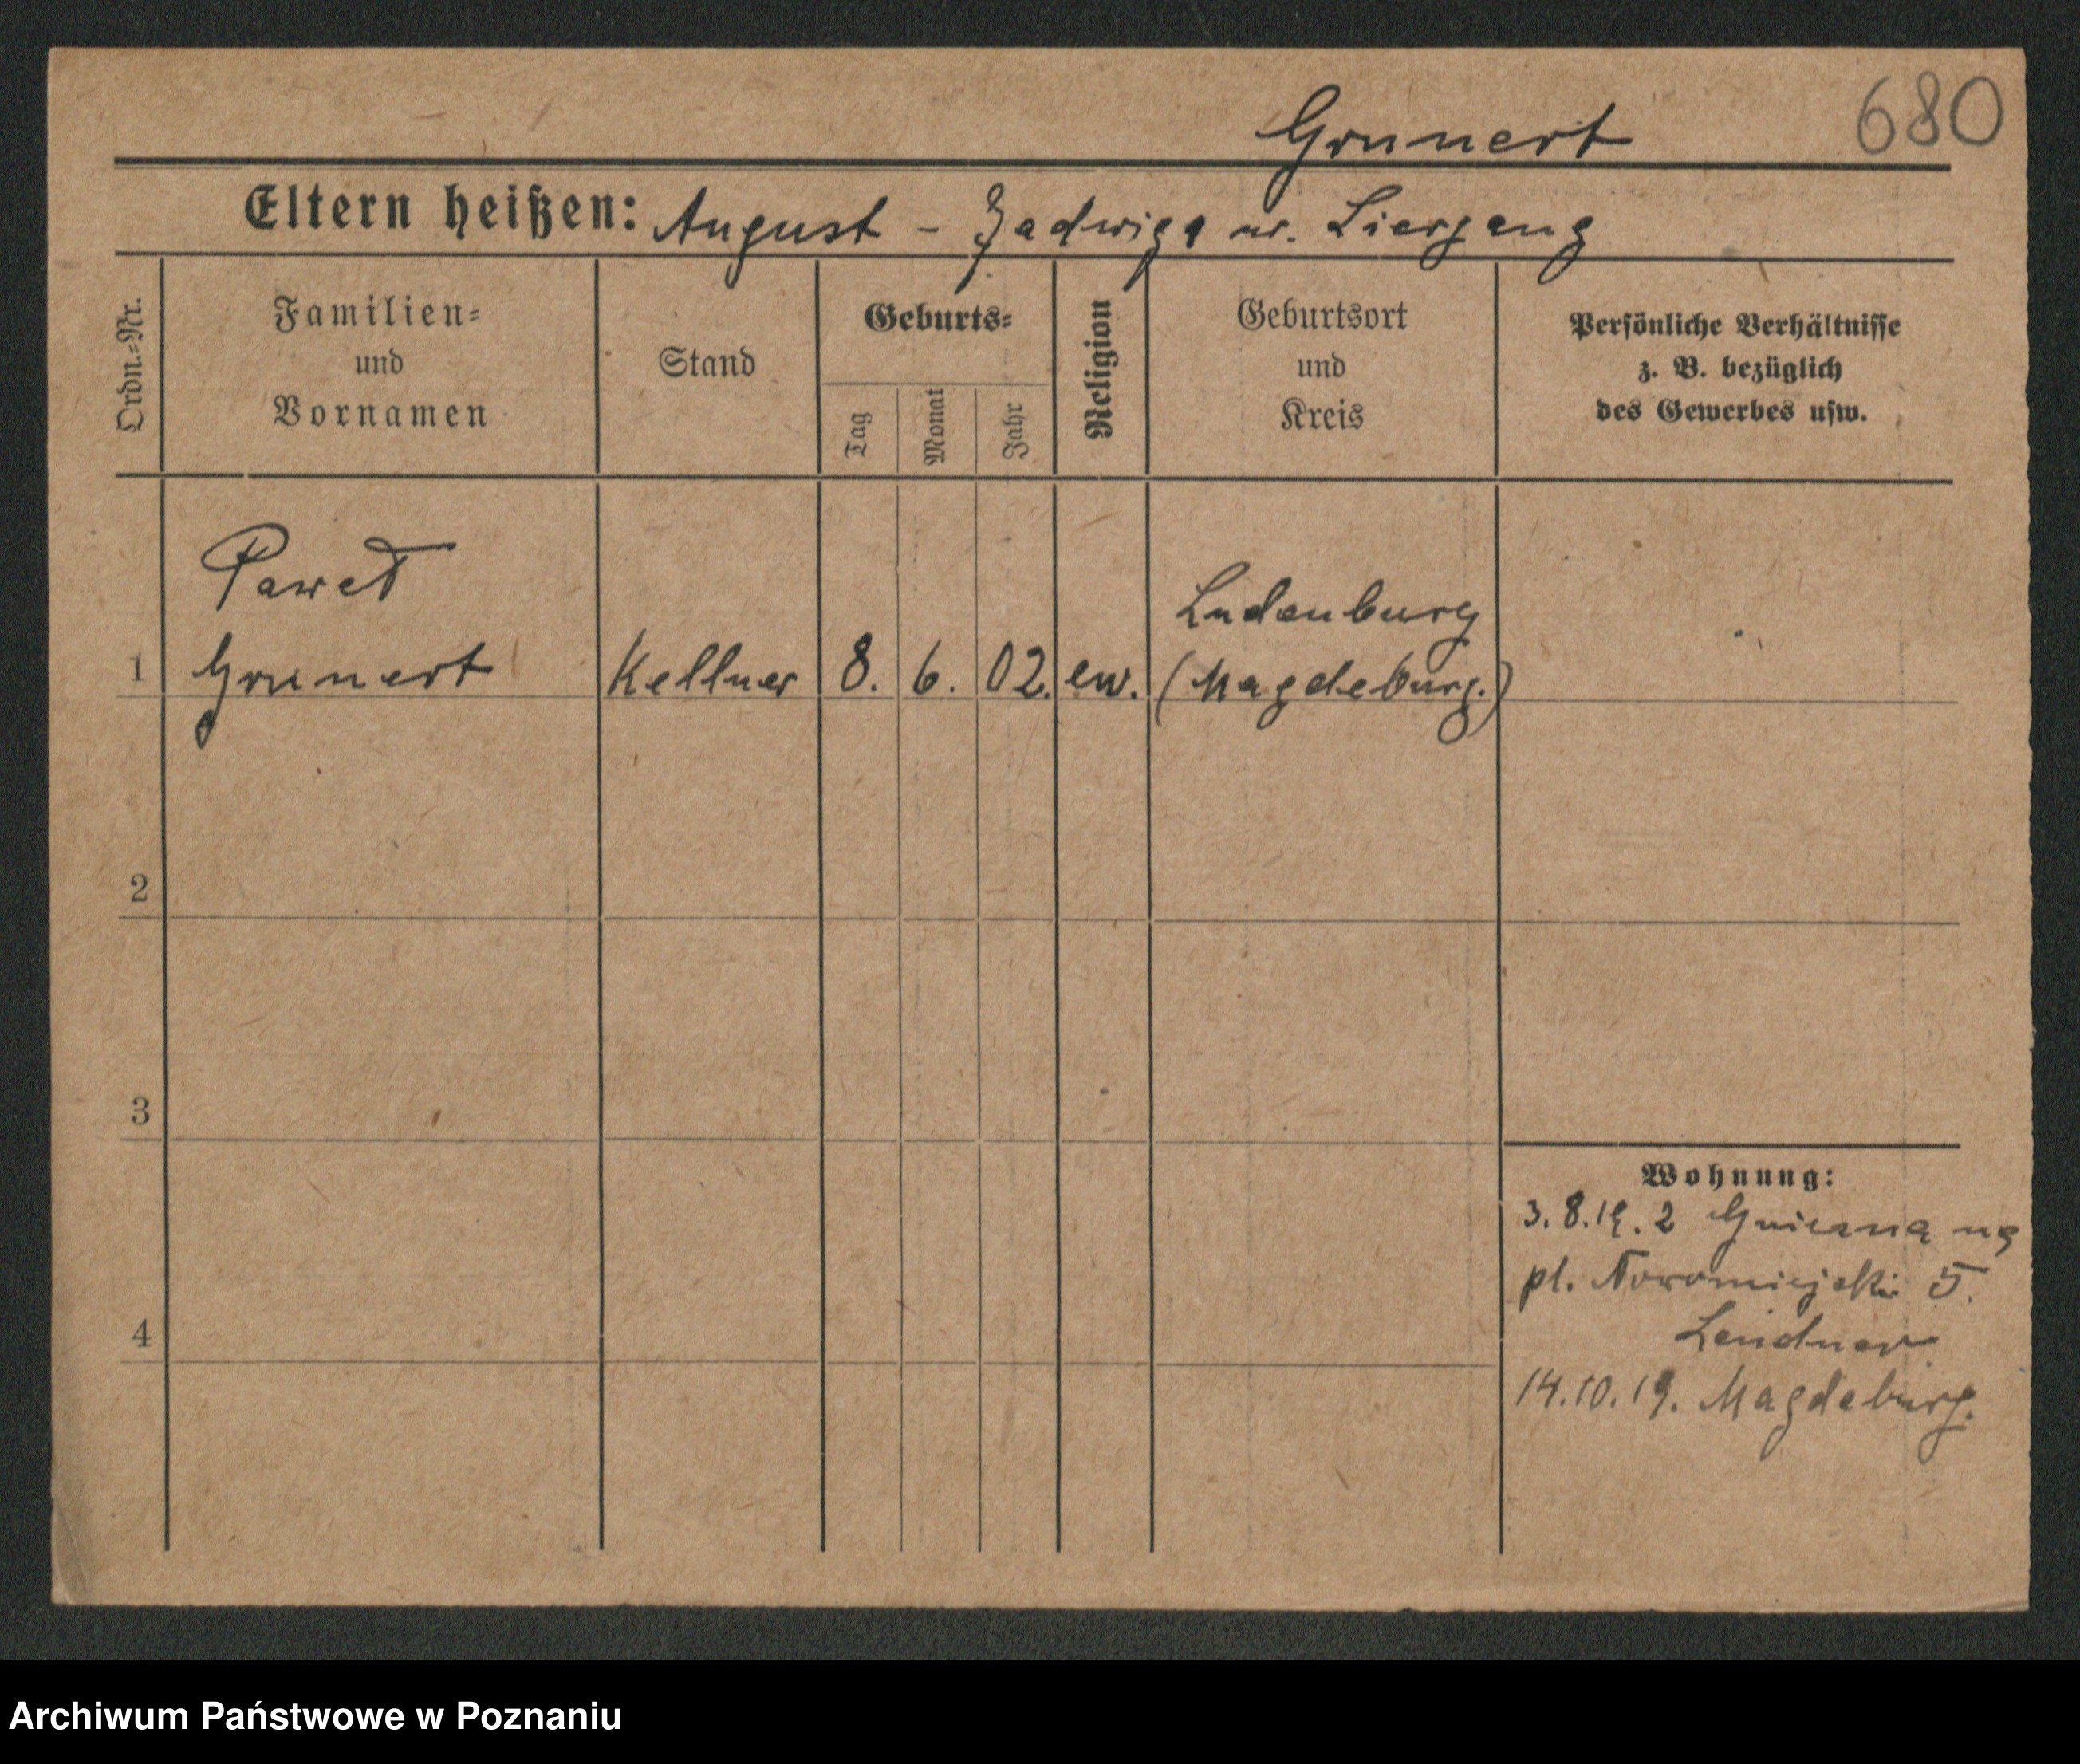 Grunert
680
Eltern heißen: August - Jadwiga ur. Liergang
Ordn.=Nr.
Familien=
und
Vornamen
Stand
Geburts=
Tag
Monat
Jahr
Religion
Geburtsort
und
Kreis
Persönliche Verhältnisse
z. B. bezüglich
des Gewerbes usw.
Paweł
Ludenburg
1 Grunert Kellner 8. 6. 02. ew. (Magdeburg.)
2
3
4
Wohnung:
3.8.19. z Gniezna na
pl. Nowomiejski 5.
Lendner
14.10.19. Magdeburg.
Archiwum Państwowe w Poznaniu